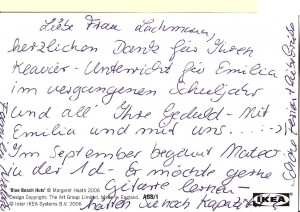 Liebe Frau Lachmann,
herzlichen Dank für Ihren
Klavier-Unterricht für Emilia
im vergangenen Schuljahr
und all' Ihre Geduld - Mit
Emilia und mit uns....:-)
Im September beginnt Mateo
in der 1d - Er möchte gerne
Gitarre lernen -
halten Sie noch
Schöne Ferien + liebe Grüße
'Blue Beach Huts' © Margaret Heath 2006
Design Copyright: The Art Group Limited. Made in England. AEB/1
© Inter IKEA Systems B.V. 2006
IKEA